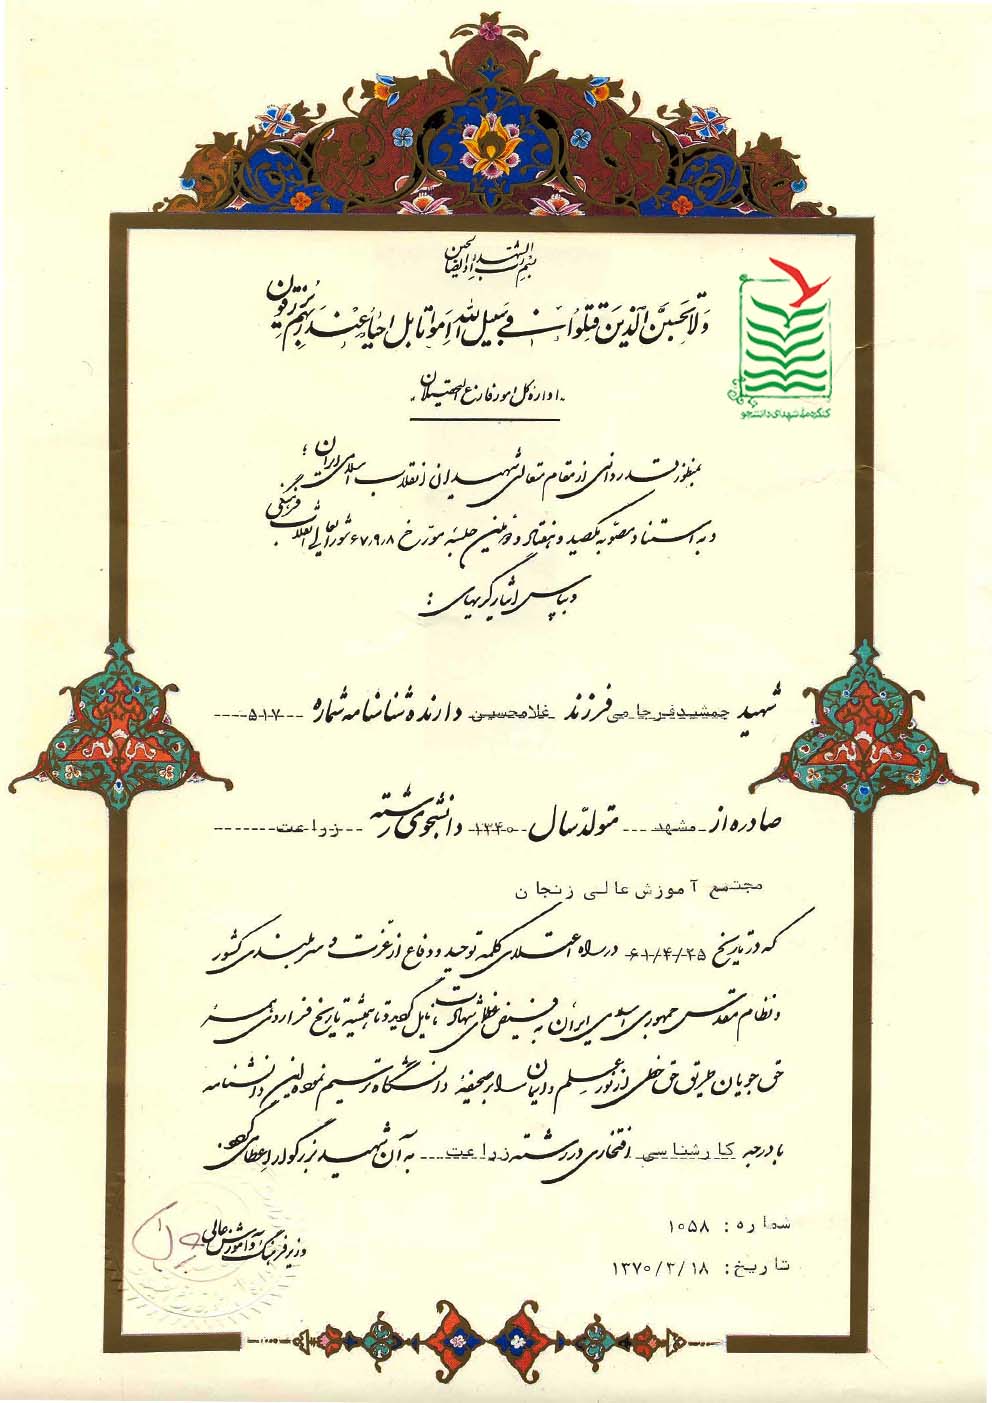 بسم رب الشهداء و الصالحین
ولا تحسبن الذین قتلوا فی سبیل الله امواتا بل احیاء عند ربهم یرزقون
کنگره ملی شهدای دانشجو
اداره کل امور فارغ التحصیلان
بمنظور قدردانی از مقام متعالی شهیدان انقلاب اسلامی ایران؛
و به استناد مصوبه یکصد و هفتاد و دومین جلسه مورخ ۶۷٫۹٫۸ شورایعالی انقلاب فرهنگی
و بپاس ایثارگریهای:
شهید جمشید فرجامی فرزند غلامحسین دارنده شناسنامه شماره ۵۱۷
صادره از مشهد متولد سال ۱۳۴۰ دانشجوی رشته زراعت
مجتمع آموزش عالی زنجان
که در تاریخ ۶۱/۴/۲۵ در راه اعتلای کلمه توحید و دفاع از عزت و سربلندی کشور
و نظام مقدس جمهوری اسلامی ایران به فیض عظمای شهادت نایل گردید تا همیشه تاریخ فرا روی همه
حق جویان طریق حق خطی از نور علم و ایمان را بر صحیفه دانشگاه ترسیم نموده این دانشنامه
با درجه کارشناسی افتخاری در رشته زراعت به آن شهید بزرگوار اعطا می‌گردد.
شماره: ۱۰۵۸
وزیر فرهنگ و آموزش عالی
تاریخ: ۱۳۷۰/۳/۱۸